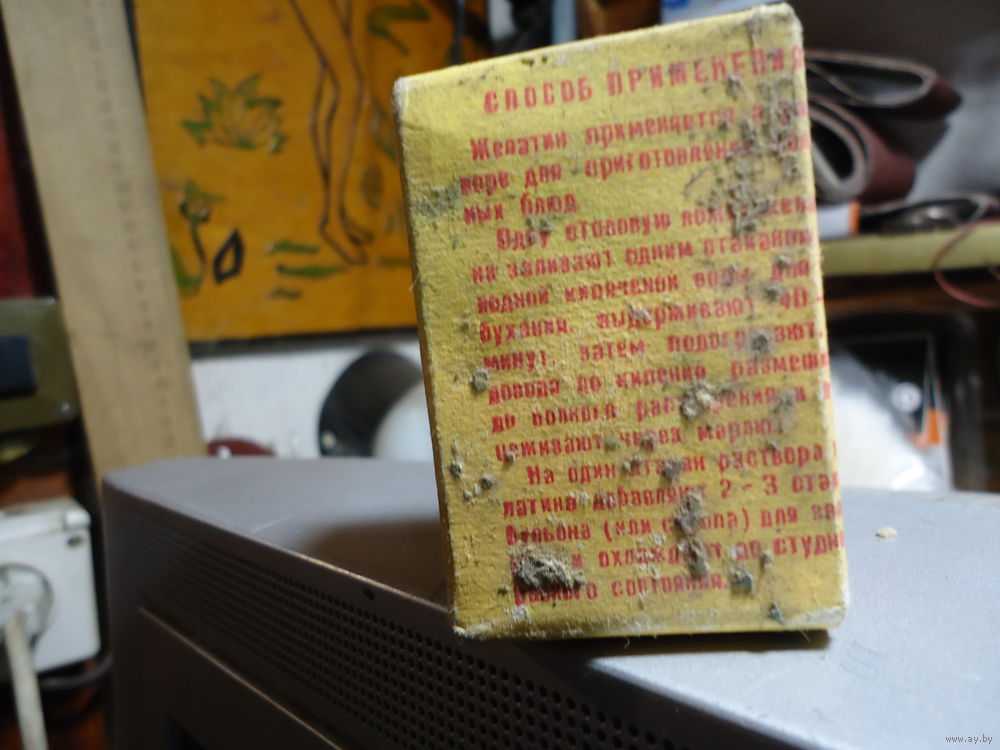 СПОСОБ ПРИМЕНЕНИЯ
Желатин применяется в
варе для приготовления
ных блюд
Одну столовую
на заливают одним стаканом
лодной кипяченой воды для
бухания, выдерживают 40 -
минут, затем подогревают,
доводя до кипения размеши
до полного растворения и
цеживают через марлю.
На один стакан раствора
латина добавляют 2 - 3 ста
бульона (или сиропа) для за
и охлаждают до студне
состояния.
www.ay.by